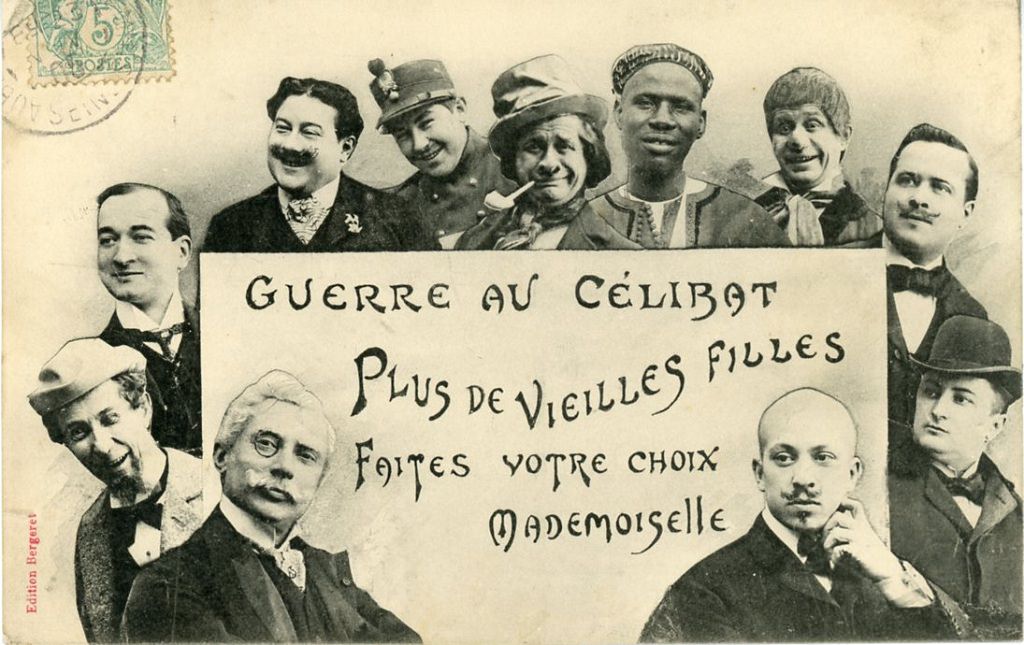 5
POSTES
SEINE
GUERRE AU CÉLIBAT
PLUS DE VIEILLES FILLES
FAITES VOTRE CHOIX
MADEMOISELLE
Edition Bergeret